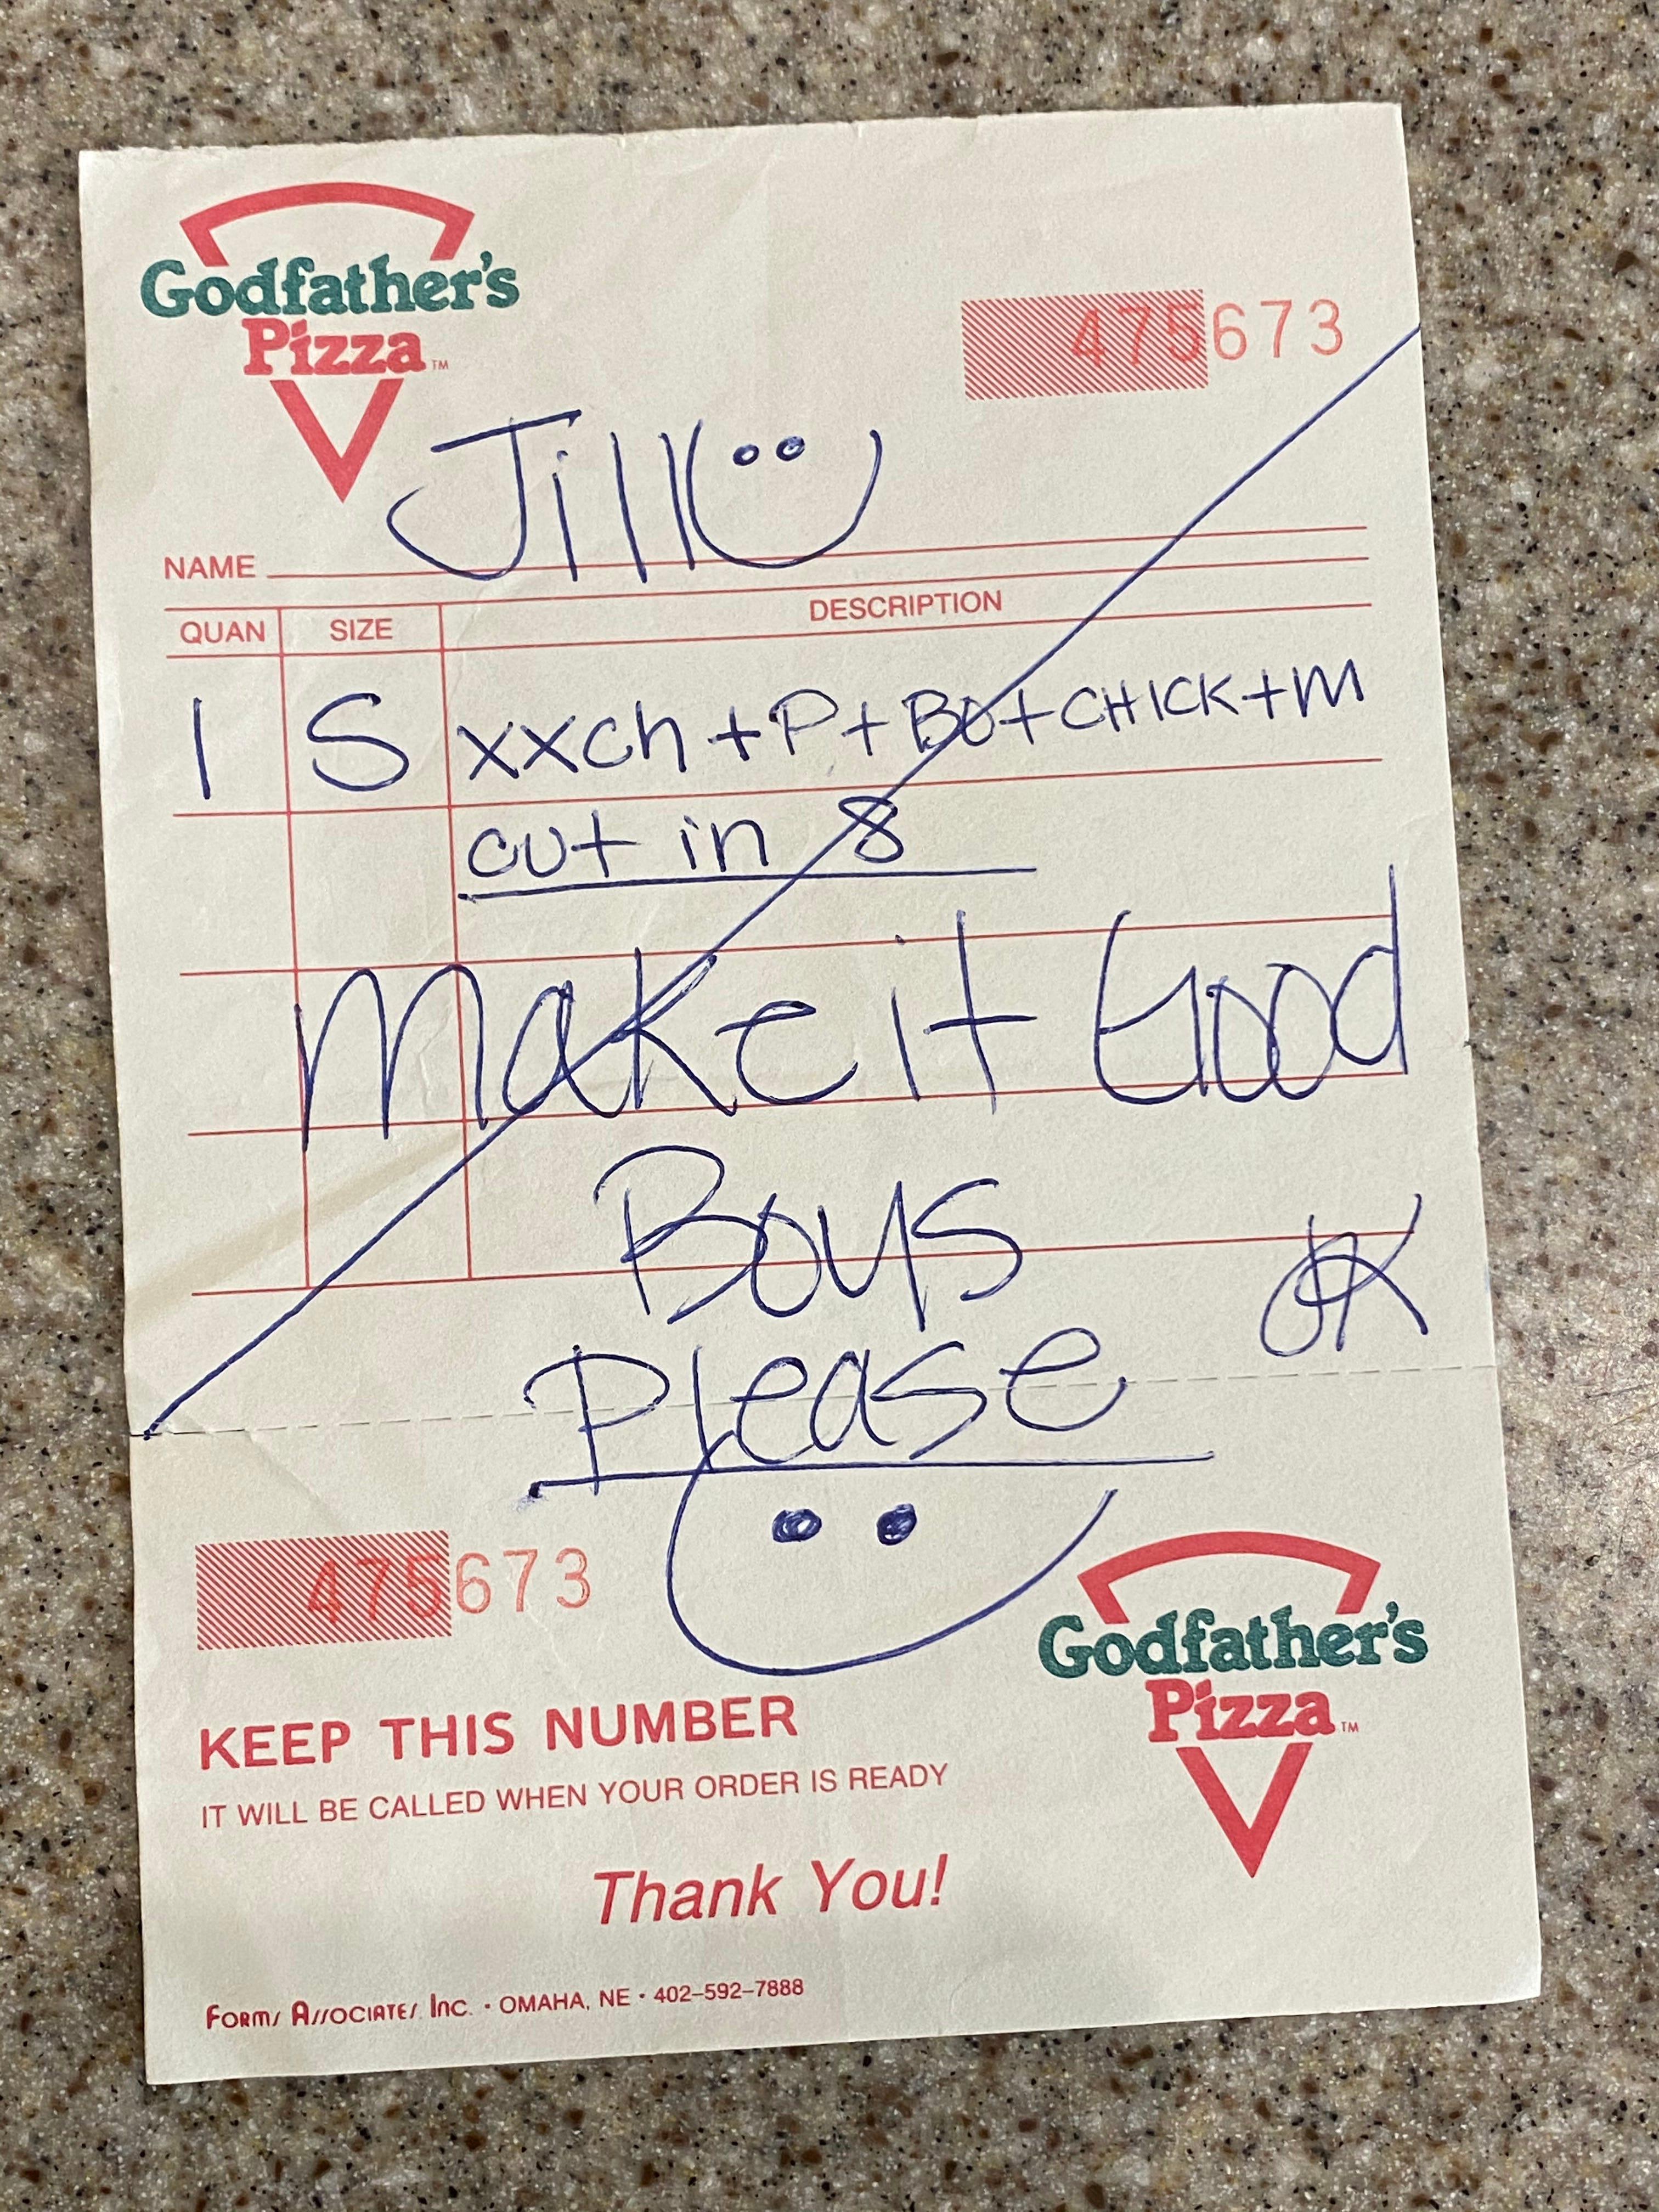 Godfather's
Pizza™
475673
Jill
NAME
QUAN SIZE DESCRIPTION
1 S xxch + P + BO + CHICK + M
cut in 8
Make it Good
Boys
Please
475673
Godfather's
Pizza™
KEEP THIS NUMBER
IT WILL BE CALLED WHEN YOUR ORDER IS READY
Thank You!
Forms Associates, Inc. • OMAHA, NE • 402–592–7888